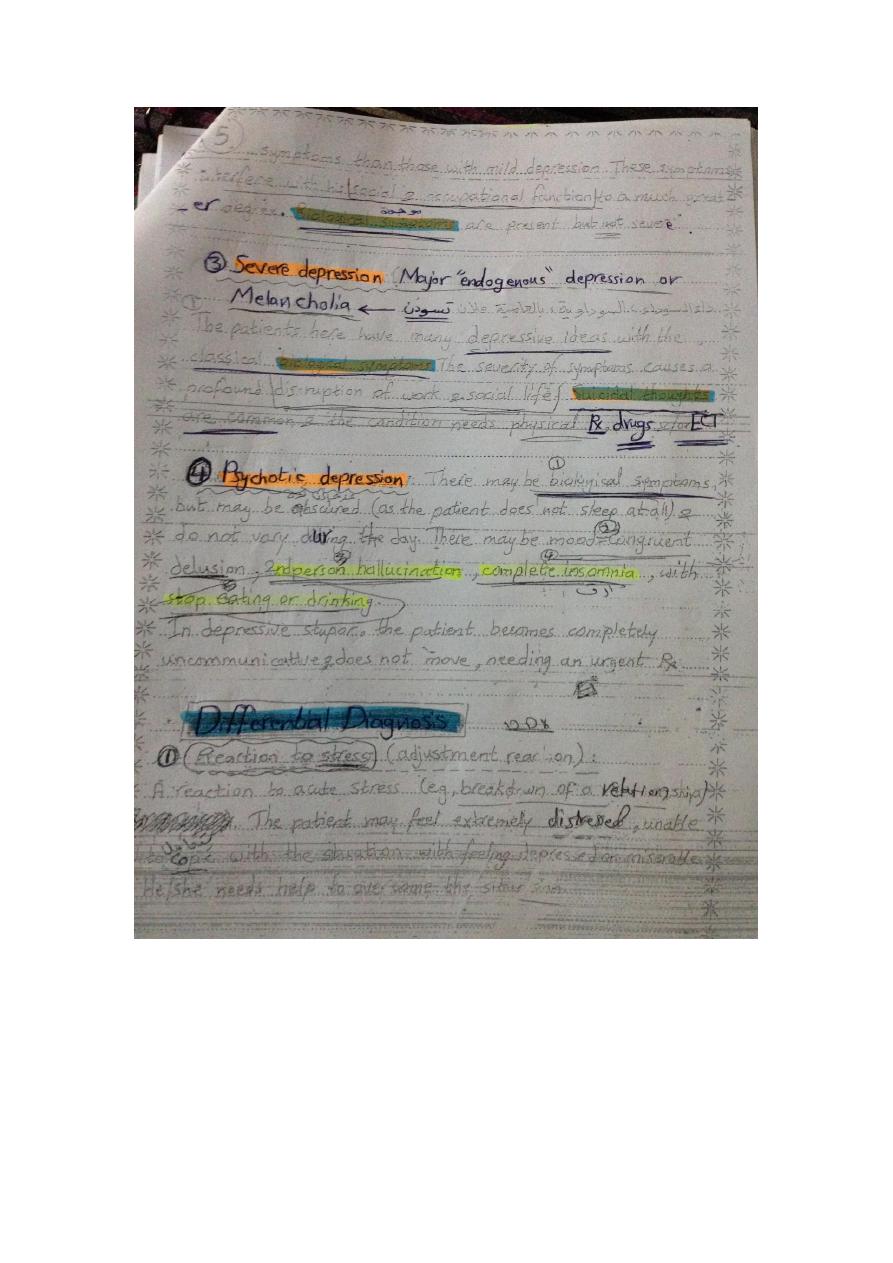 5
symptoms than those with mild depression. These symptoms
interfere with his social & occupational function to a much great
_er degree. Biological symptoms are present but not severe".
③ Severe depression Major "endogenous" depression or
Melancholia ← تسودن
The patients here have many depressive ideas with the
classical biological symptoms The severity of symptoms causes a
profound disruption of work & social life/ Suicidal thoughts
are common & the condition needs physical Rx, drugs ECT
④ Psychotic depression: There may be ① biological symptoms,
but may be obscured (as the patient does not sleep at all) &
do not vary during the day. There may be ② mood-congruent
delusion, 2nd person hallucination, ④ complete insomnia, with
stop eating or drinking.
In depressive stupor: the patient becomes completely
uncommunicative & does not move, needing an urgent Rx
Differential Diagnosis DDx
① Reaction to stress (adjustment reaction):
A reaction to acute stress (eg, breakdown of a relationship)
The patient may feel extremely distressed, unable
to cope with the situation with feeling depressed or miserable
He/she needs help to overcome the situation